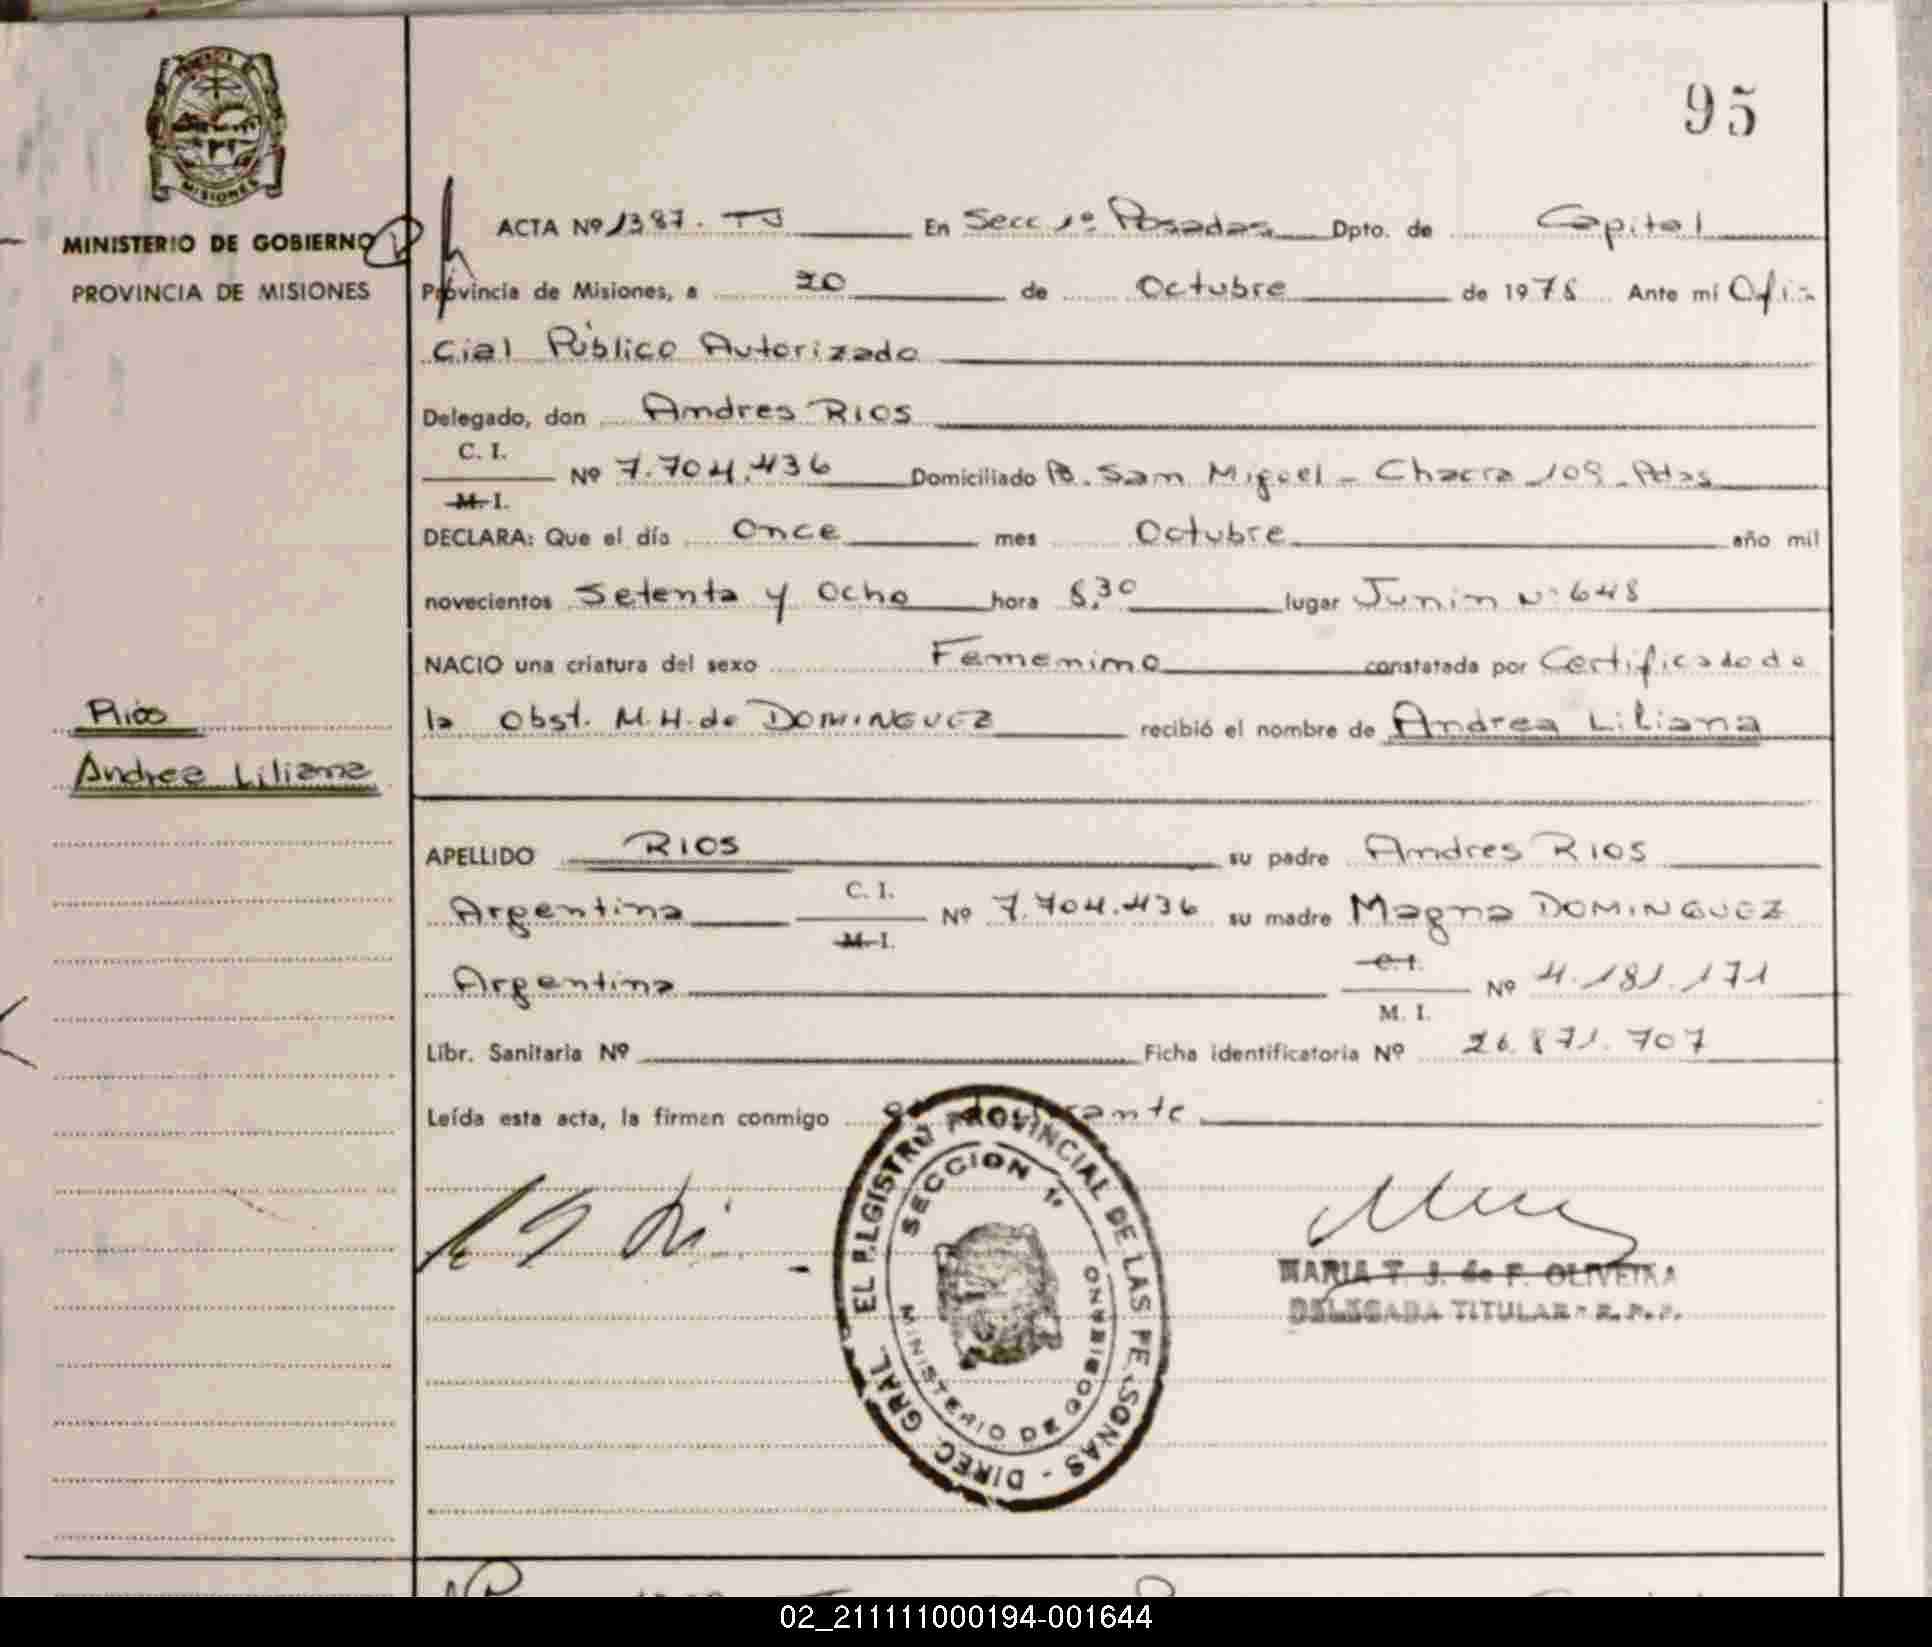 95
MISIONES
MINISTERIO DE GOBIERNO
PROVINCIA DE MISIONES
ACTA Nº 1387. TJ En Secc 1º Posadas Dpto. de Capital
Provincia de Misiones, a 20 de Octubre de 1978 Ante mí Ofi-
cial Público Autorizado
Delegado, don Andres RIOS
C. I.
M. I.
Nº 7.704.436 Domiciliado Bº. San Miguel - Chacra 109 - Pdas
DECLARA: Que el día Once mes Octubre año mil
novecientos Setenta y Ocho hora 8,30 lugar Junin Nº 648
NACIO una criatura del sexo Femenino constatada por Certificado de
la Obst. M.H. de DOMINGUEZ recibió el nombre de Andrea Liliana
Rios
Andrea Liliana
APELLIDO RIOS su padre Andres RIOS
Argentina C. I. M. I. Nº 7.704.436 su madre Magna DOMINGUEZ
Argentina C. I. M. I. Nº 4.181.171
Libr. Sanitaria Nº Ficha identificatoria Nº 26.871.707
Leída esta acta, la firman conmigo
DIREC GRAL. EL REGISTRO PROVINCIAL DE LAS PERSONAS -
SECCION 1º
MINISTERIO DE GOBIERNO
MARIA T. J. de F. OLIVEIRA
DELEGADA TITULAR - R. P. P.
02_211111000194-001644